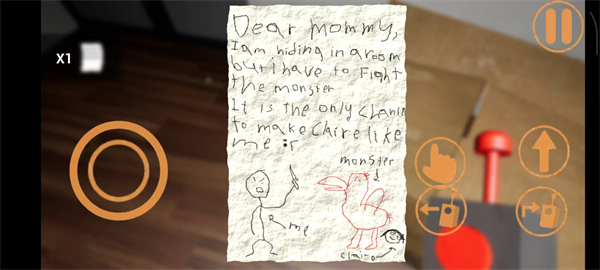 Dear Mommy,
X1
I am hiding in a room
but i have to Fight
the monster
It is the only chance
to make Claire like
me :r
monster
me
claire